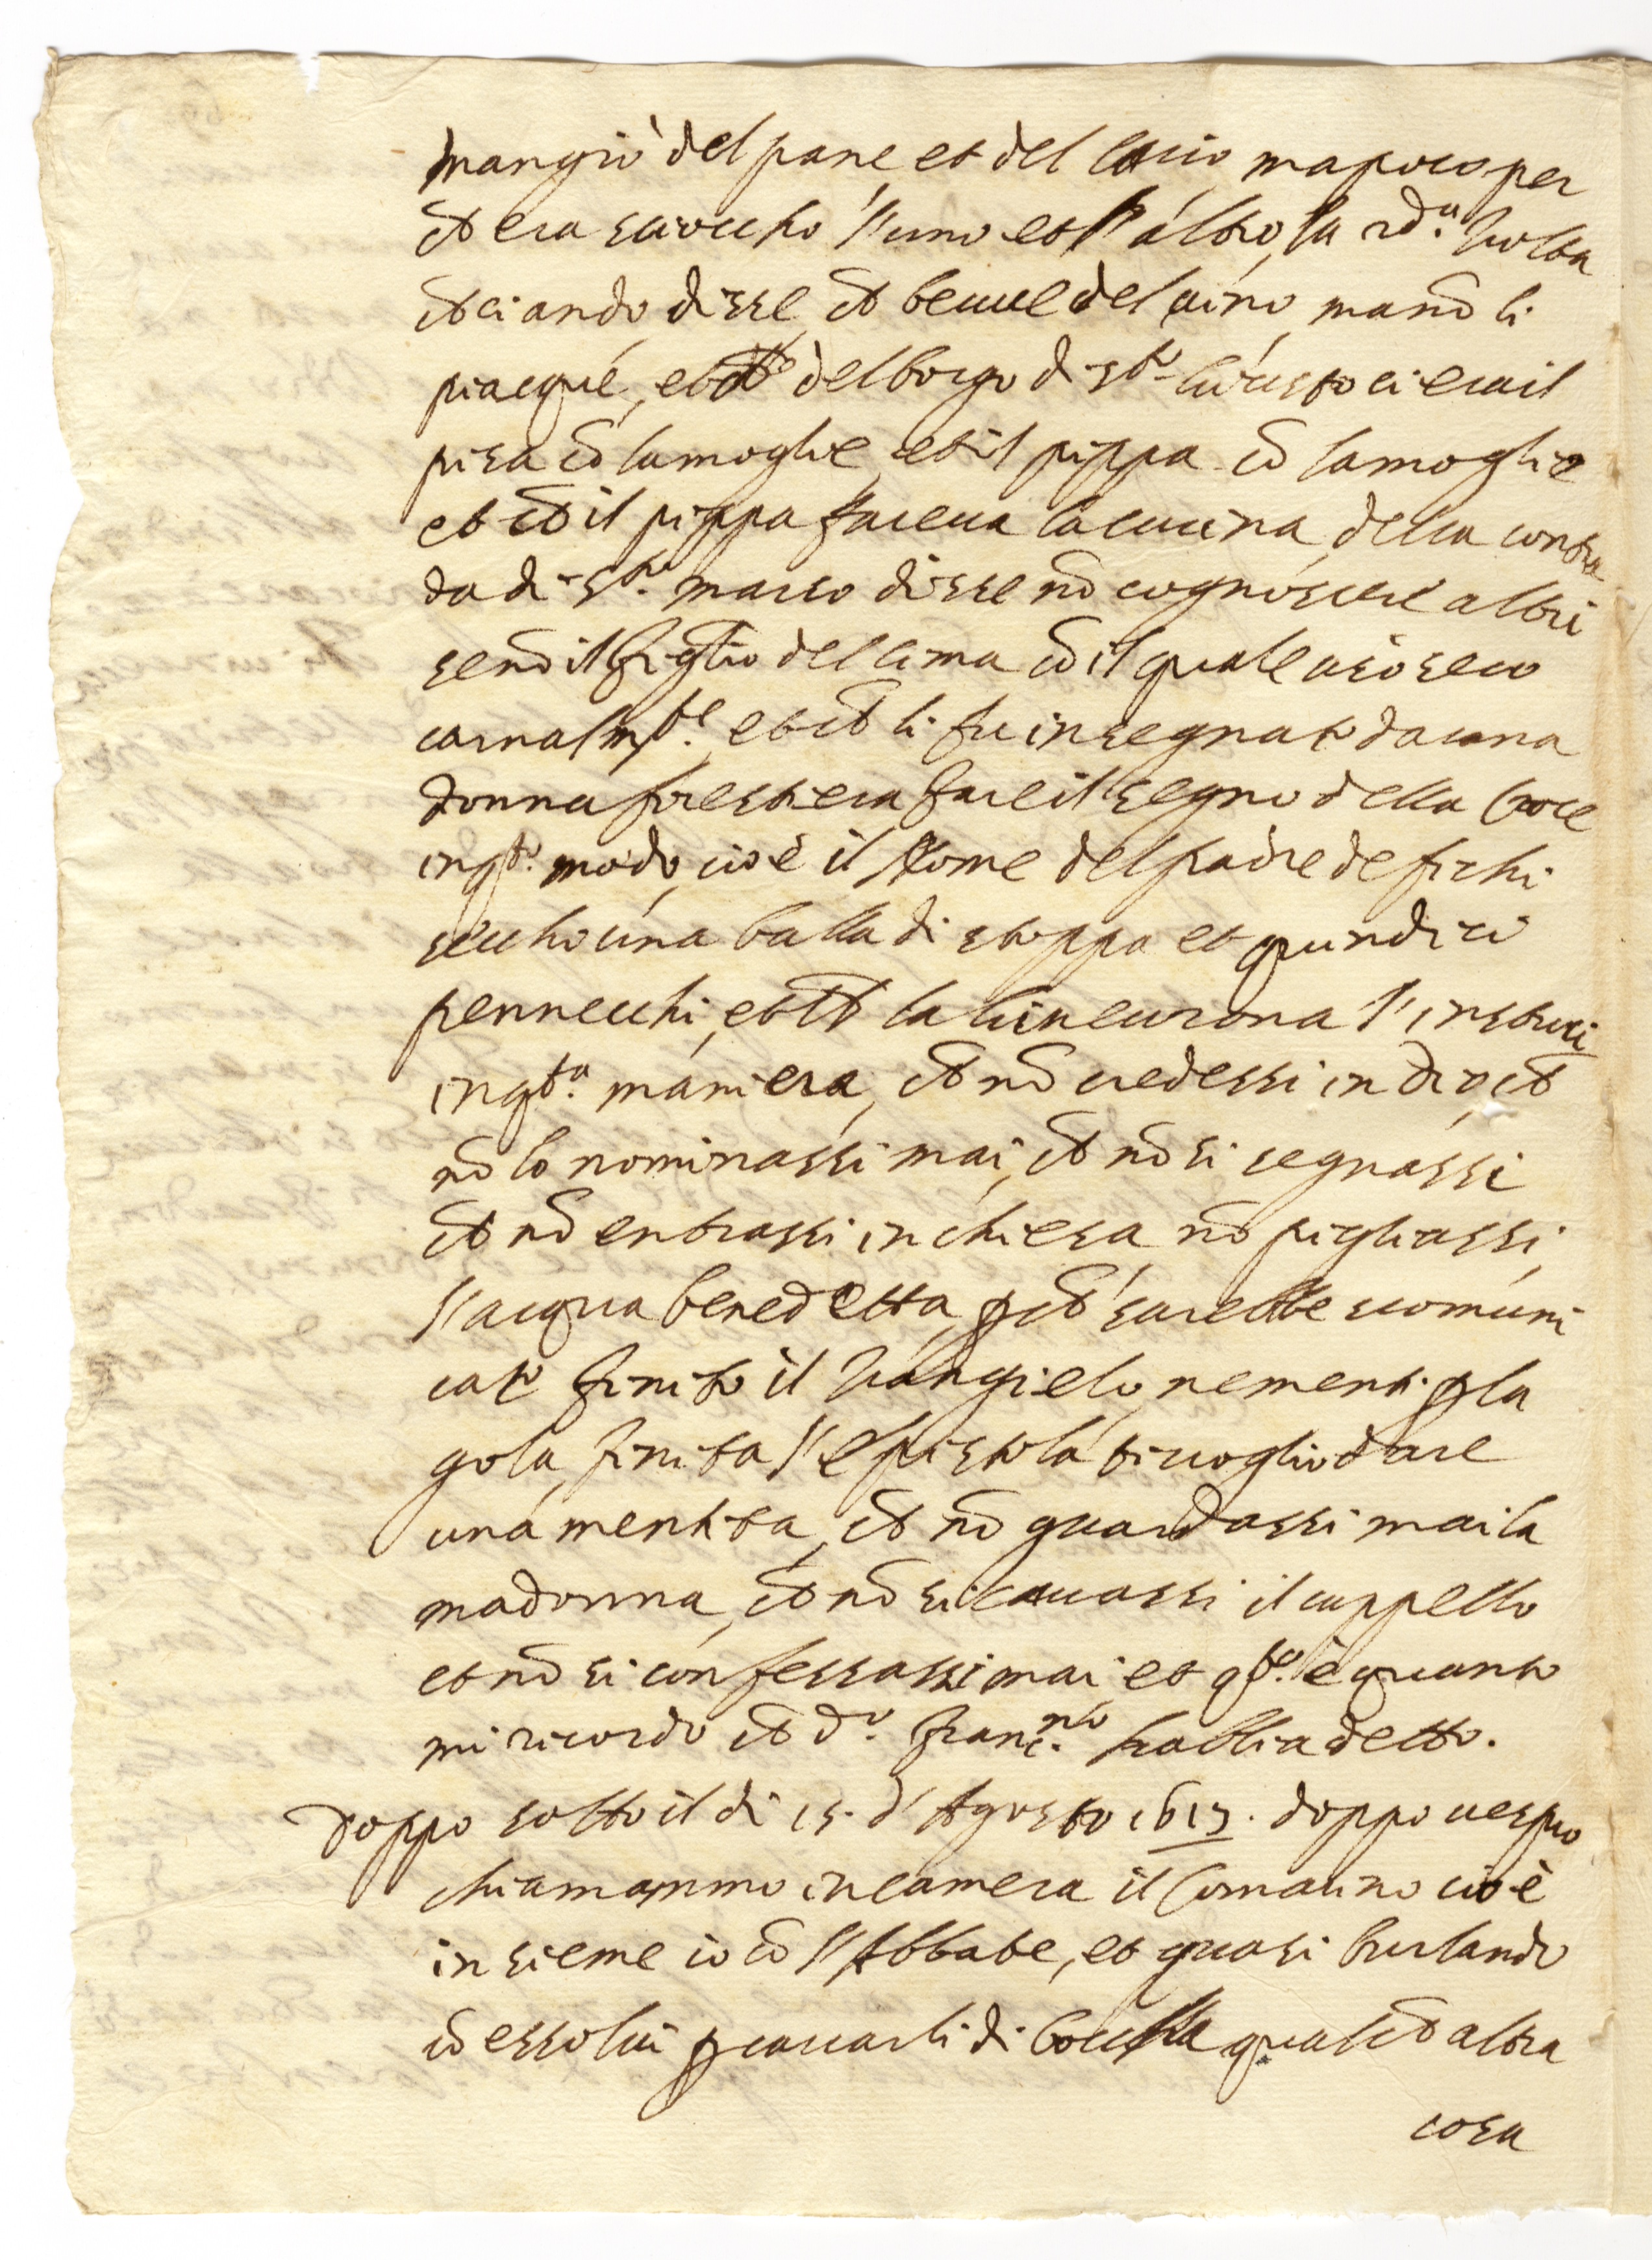 mangiò del pane et del cacio ma poco per
che era scioccho l'uno et l'altro, la 2da. volta
che ci andò disse che bevve del vino ma nō li
piacque, et che del borgo di sto. ci era il
pisa cō la moglie et il pippa cō la moglie
et che il pippa faceva la cucina, della contra
da di Sto. marco disse nō cognoscere altri
se nō il figlio del cima cō il quale usò seco
carnalmte. et che li fu insegnato da una
donna forestiera fare il segno della Croce
in qto. modo, cioè il Nome del padre de fichi
secchi una balla di stoppa et quindici
pennecchi, et che la l'instruì
in qta. maniera, che nō credessi in dio, che
nō lo nominassi mai, che nō si segnassi
che nō entrassi in chiesa, nō pigliassi
l'acqua benedetta, p che sarebbe scomuni
cato finito il Vangielo ne menti p la
gola, finita l'epistola ti voglio dare
una mentita, che nō guardassi mai la
madonna, che nō si cavassi il cappello
et nō si confessassi mai, et qto. è quanto
mi ricordo che do. Franc.nto habbia detto.
Doppo sotto il dì 15. d'Agosto 1613. doppo vespro
chiamammo in camera il Comatino cioè
insieme io cō l'Abbate, et quasi burlando
cō esso lui p cavarli di boccha qualche altra
cosa